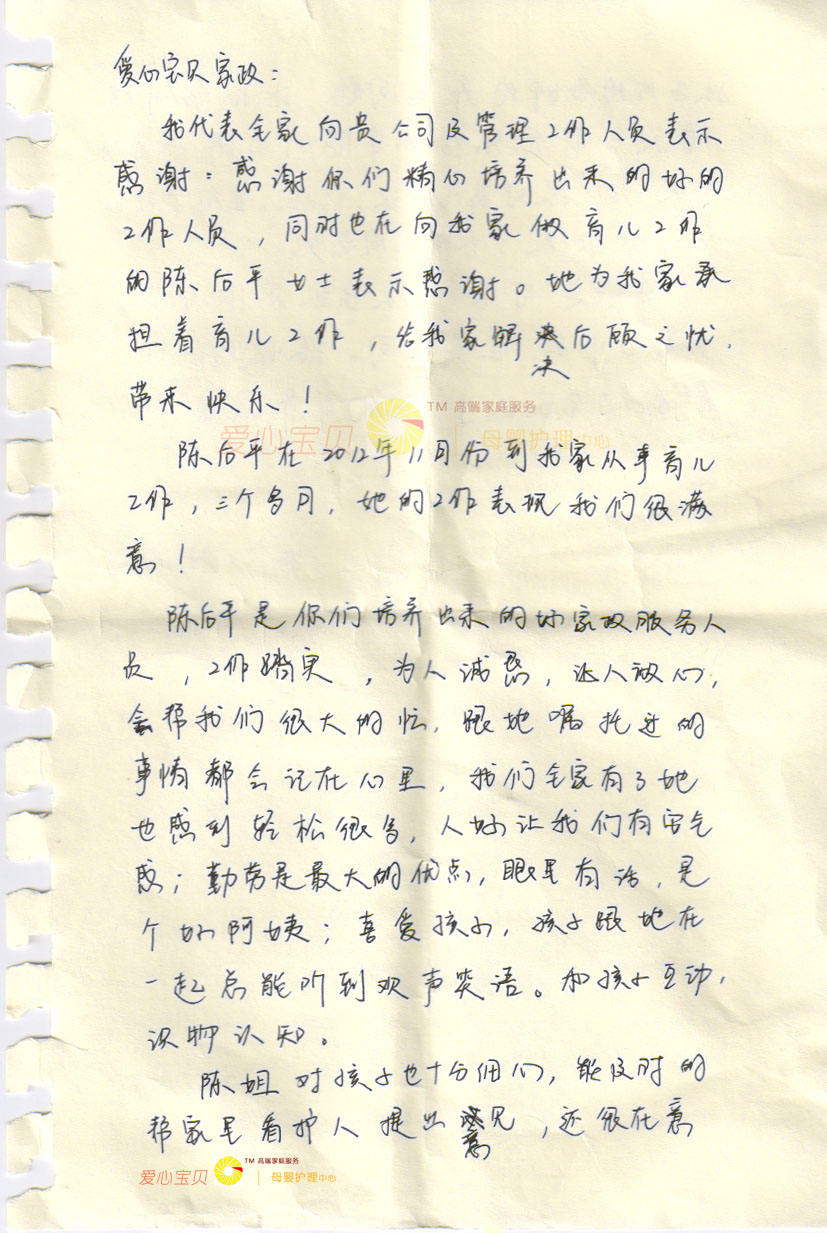 爱心宝贝家政：
我代表全家向贵公司及管理工作人员表示
感谢：感谢你们精心培养出来的好的
工作人员，同时也在向我家做育儿工作
的陈后平女士表示感谢。她为我家承
担着育儿工作，给我家解决后顾之忧，
带来快乐！
爱心宝贝 TM 高端家庭服务 母婴护理中心
陈后平在2012年11月份到我家从事育儿
工作，三个多月，她的工作表现我们很满
意！
陈后平是你们培养出来的好家政服务人
员，工作踏实，为人诚恳，让人放心，
会帮我们很大的忙，跟她嘱托过的
事情都会记在心里，我们全家有了她
也感到轻松很多，人好让我们有
感；勤劳是最大的优点，眼里有活，是
个好阿姨；喜爱孩子，孩子跟她在
一起总能听到欢声笑语。和孩子互动，
识物认知。
陈姐对孩子也十分细心，能及时的
帮家里看护人提出意见，还很在意
爱心宝贝 TM 高端家庭服务 母婴护理中心